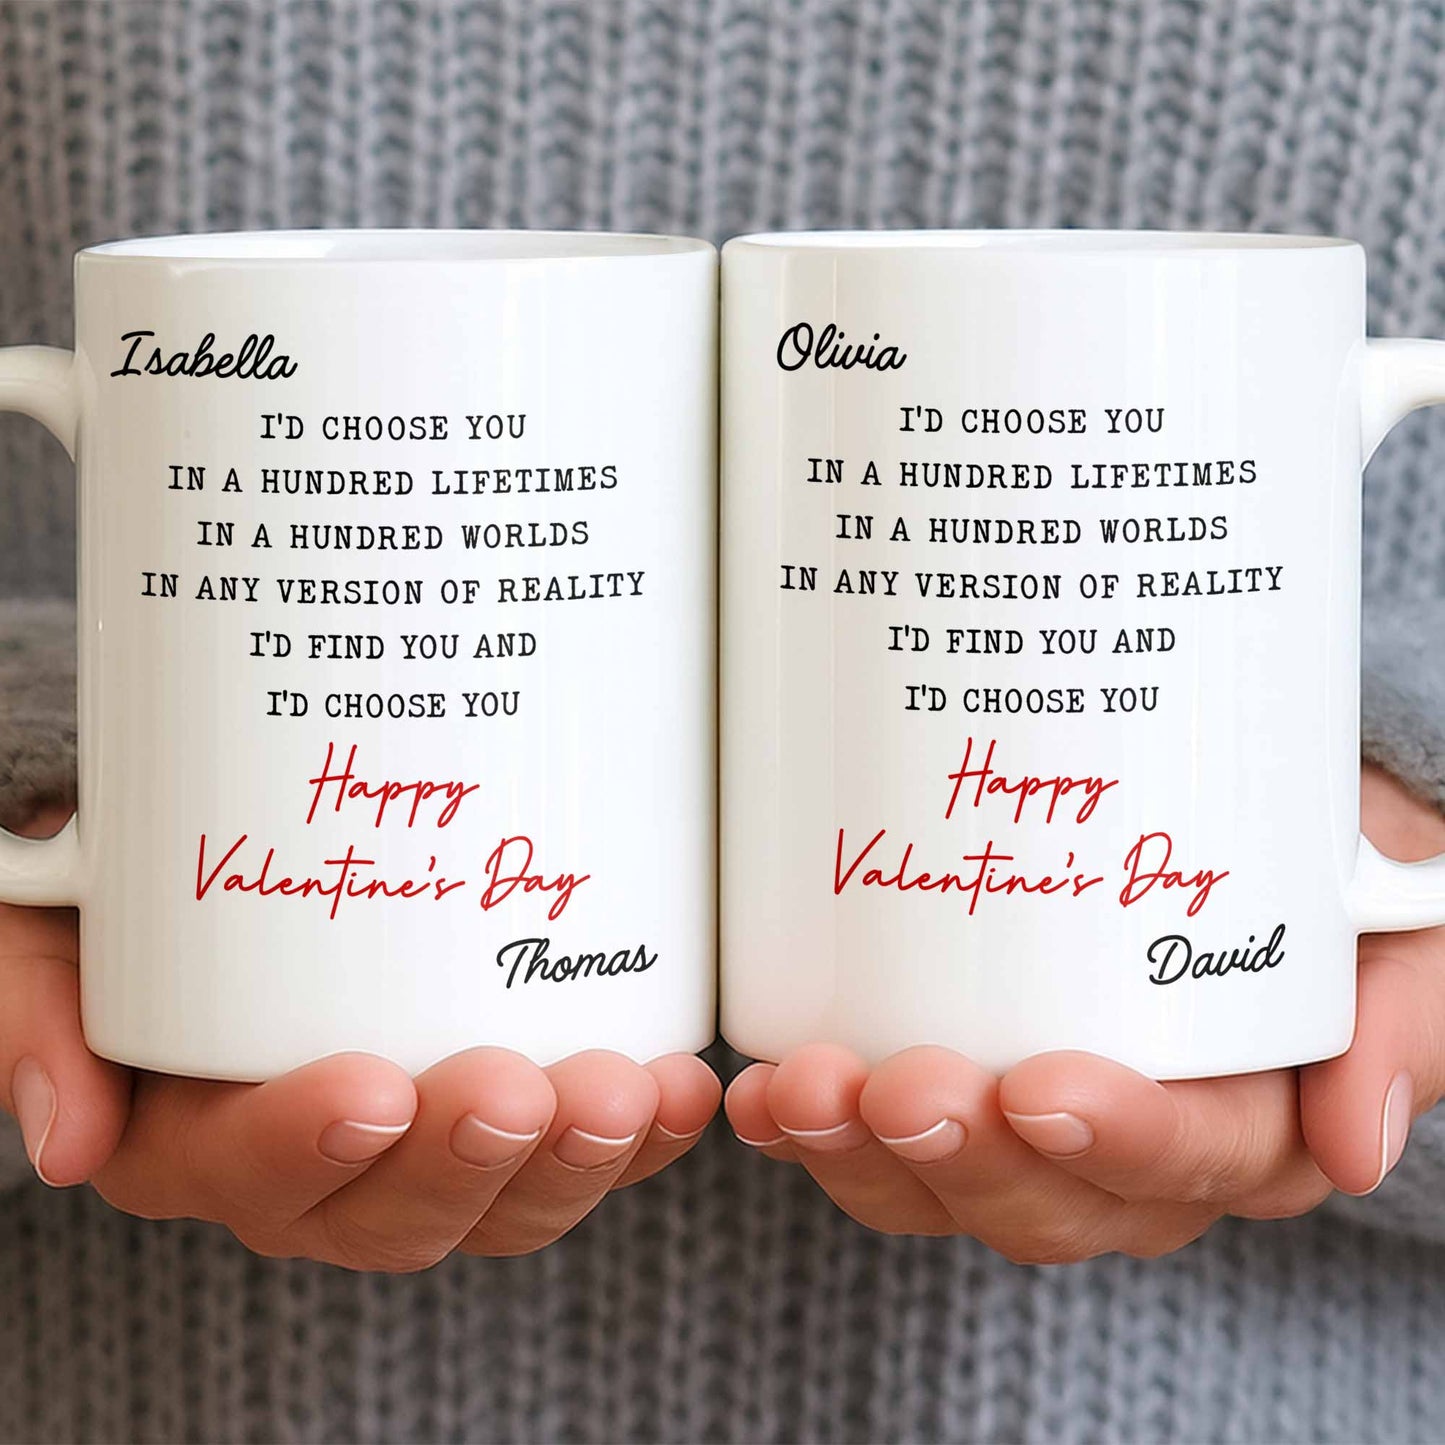 Isabella
I'D CHOOSE YOU
IN A HUNDRED LIFETIMES
IN A HUNDRED WORLDS
IN ANY VERSION OF REALITY
I'D FIND YOU AND
I'D CHOOSE YOU
Happy
Valentine's Day
Thomas
Olivia
I'D CHOOSE YOU
IN A HUNDRED LIFETIMES
IN A HUNDRED WORLDS
IN ANY VERSION OF REALITY
I'D FIND YOU AND
I'D CHOOSE YOU
Happy
Valentine's Day
David